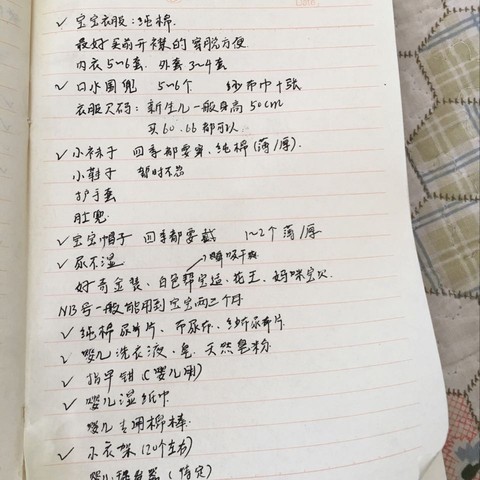 ✓ 宝宝衣服:纯棉.
最好买前开襟的 穿脱方便.
内衣5~6套. 外套3~4套
✓ 口水围兜 5~6个 纱布巾十张
衣服尺码: 新生儿一般身高50cm
买60.66都可以
✓ 小袜子 四季都要穿.纯棉(薄/厚).
小鞋子 暂时不忙
护手套
肚兜.
✓ 宝宝帽子 四季都要戴 1~2个薄/厚
✓ 尿不湿 瞬吸干爽
好奇金装、白色帮宝适、花王、妈咪宝贝
NB号一般能用到宝宝两三个月
✓ 纯棉尿片、布尿片、纱尿布片
✓ 婴儿洗衣液、皂、天然皂粉
✓ 指甲钳(婴儿用)
✓ 婴儿湿纸巾
婴儿专用棉棒.
✓ 小衣架(20个左右)
(待定)